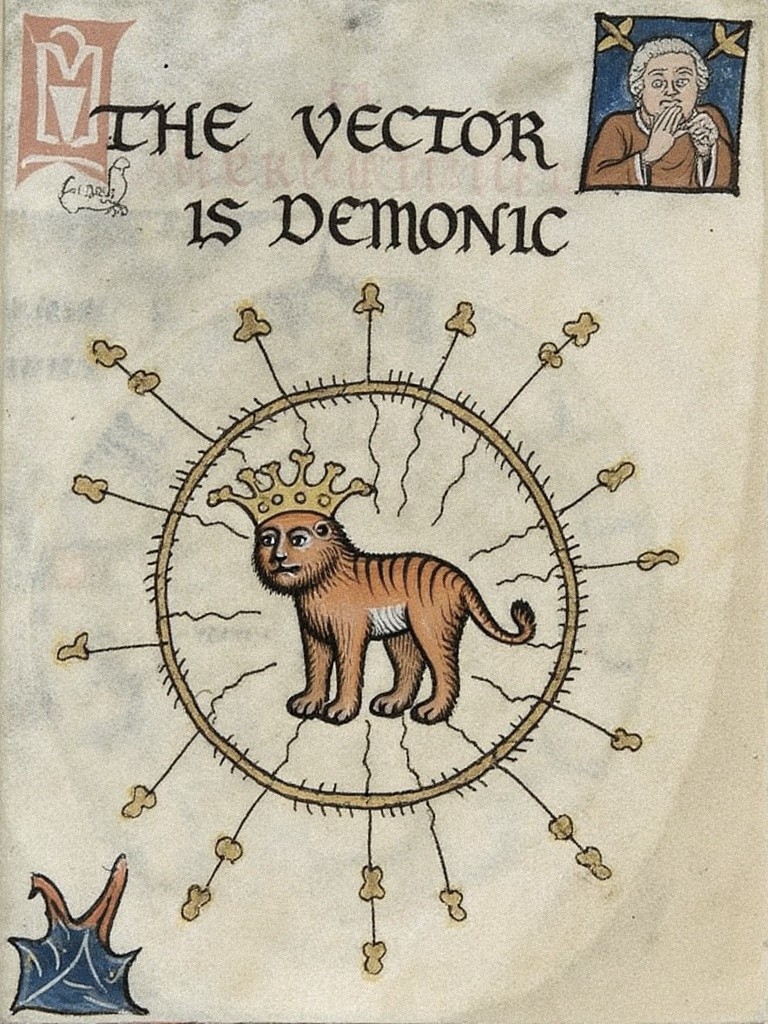 THE VECTOR
IS DEMONIC